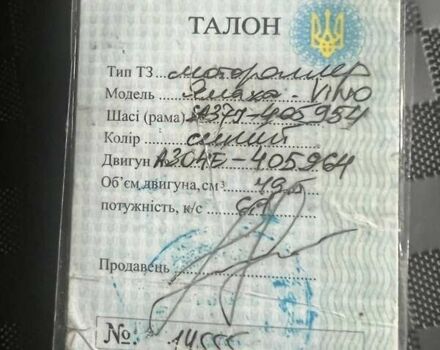 ТАЛОН
Тип ТЗ мотороллер
Модель Ямаха - VINO
Шасі (рама) SA37J-405954
Колір синий
Двигун A304E-405964
Об'єм двигуна, см³ 49,5
потужність, к/с
Продавець
№